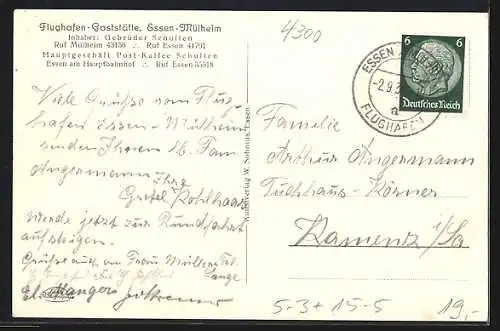 Flughafen-Gaststätte, Essen-Mülheim
Inhaber: Gebrüder Schulten
Ruf Mülheim 43156 ∴ Ruf Essen 41791
Hauptgeschäft Post-Kaffee Schulten
Essen am Hauptbahnhof ∴ Ruf Essen 35518
4300
ESSEN
-2.9.3
a
FLUGHAFEN
6 6
Deutsches Reich
Viele Grüße vom Flug-
hafen Essen-Mülheim
senden Ihnen lb. Fam.
Angermann Ihre
Gretel Kohlhaas
werde jetzt zur Rundfahrt
aufsteigen.
Grüße auch an Frau Müller
Lange
Kunstverlag W. Essen
Familie
Arthur Angermann
Tuchhaus-Körner
Kamenz i/Sa
5-3+15-5
19,-